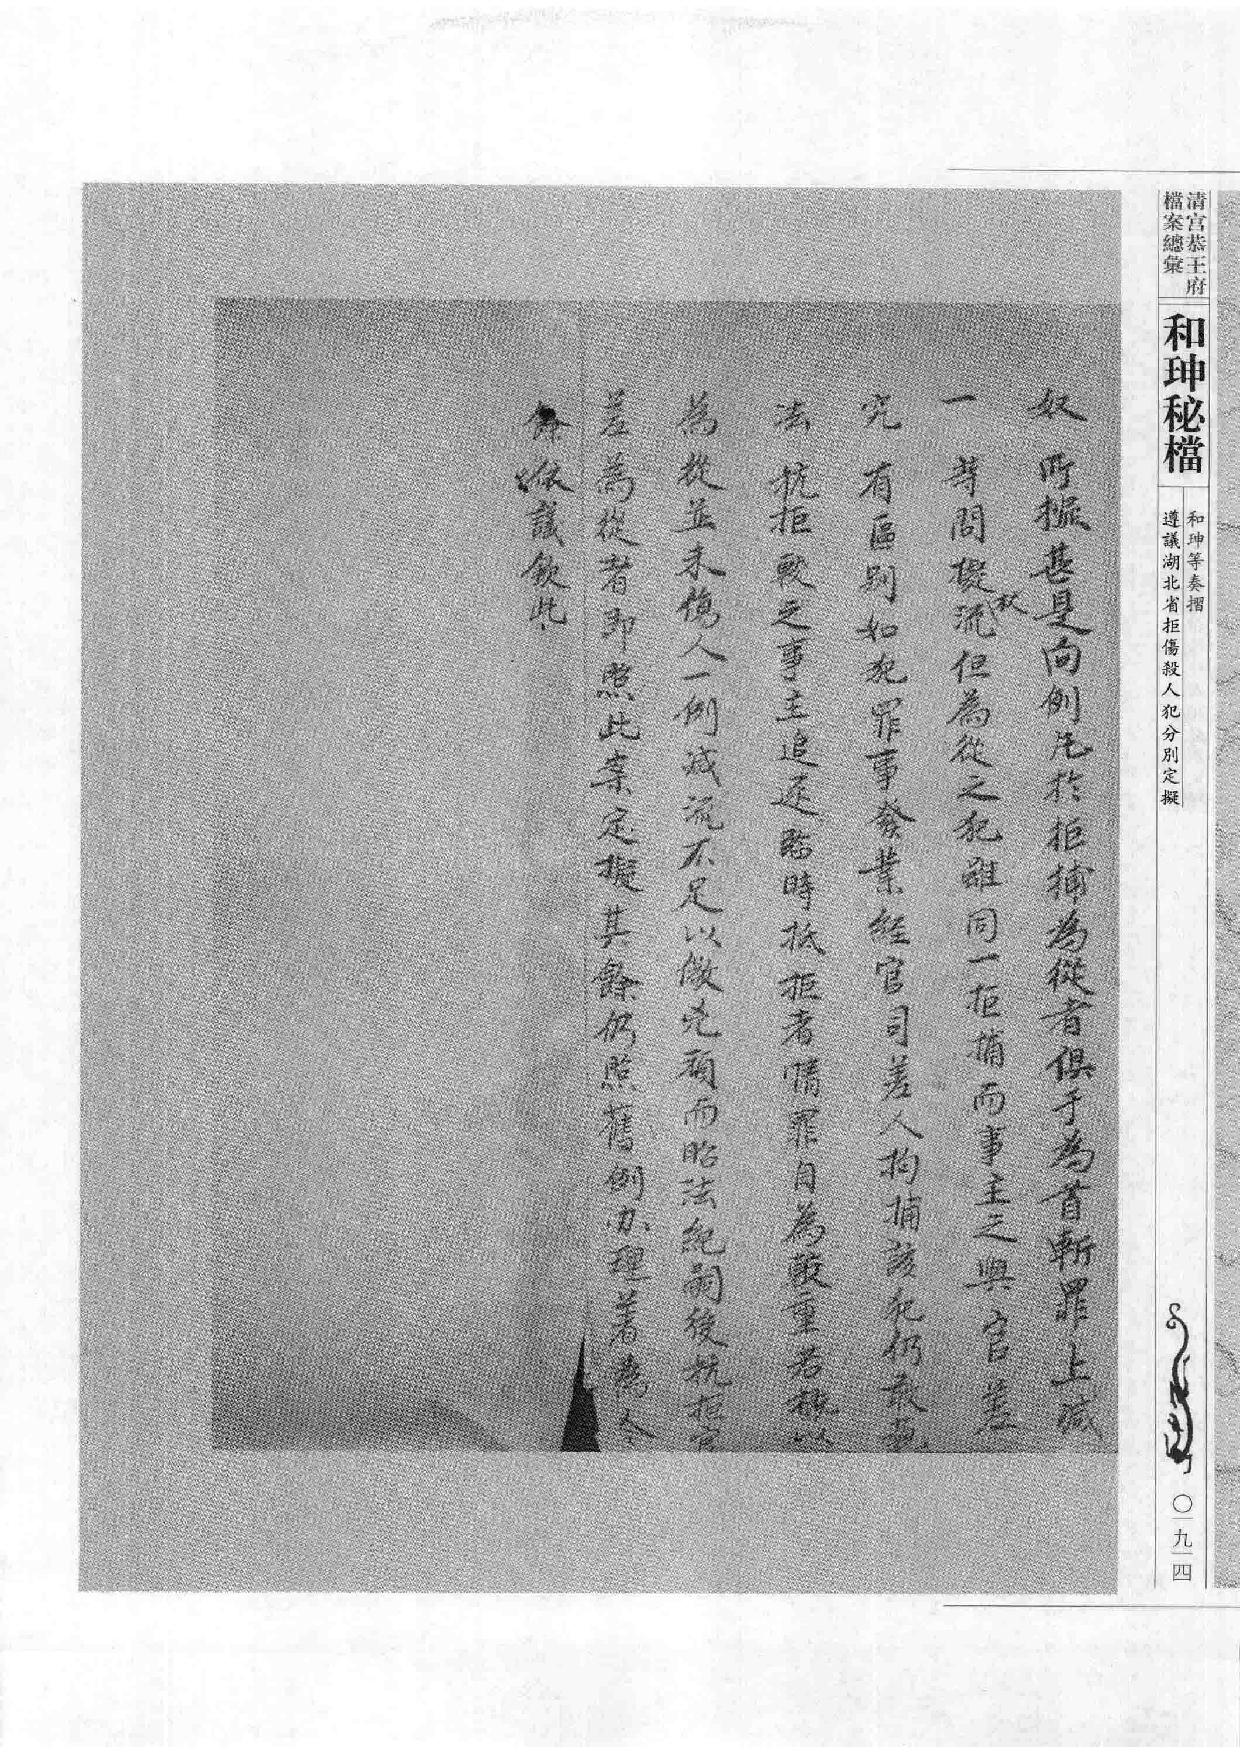 清宮恭王府
檔案總彙
和珅秘檔
和珅等奏摺
遵議湖北省拒傷殺人犯分別定擬
〇九四
所擬甚是向例凡於拒捕為從者俱于為首斬罪上減
一等問擬流但為從之犯雖同一拒捕而事主之與官差
究有區別如犯罪事發業經官司差人拘捕該犯仍敢
法抗拒較之事主追逐臨時抵拒者情罪自為較重若概以
為從並未傷人一例減流不足以儆兇頑而昭法紀嗣後抗拒官
差為從者即照此案定擬其餘仍照舊例辦理著為令
餘依議欽此